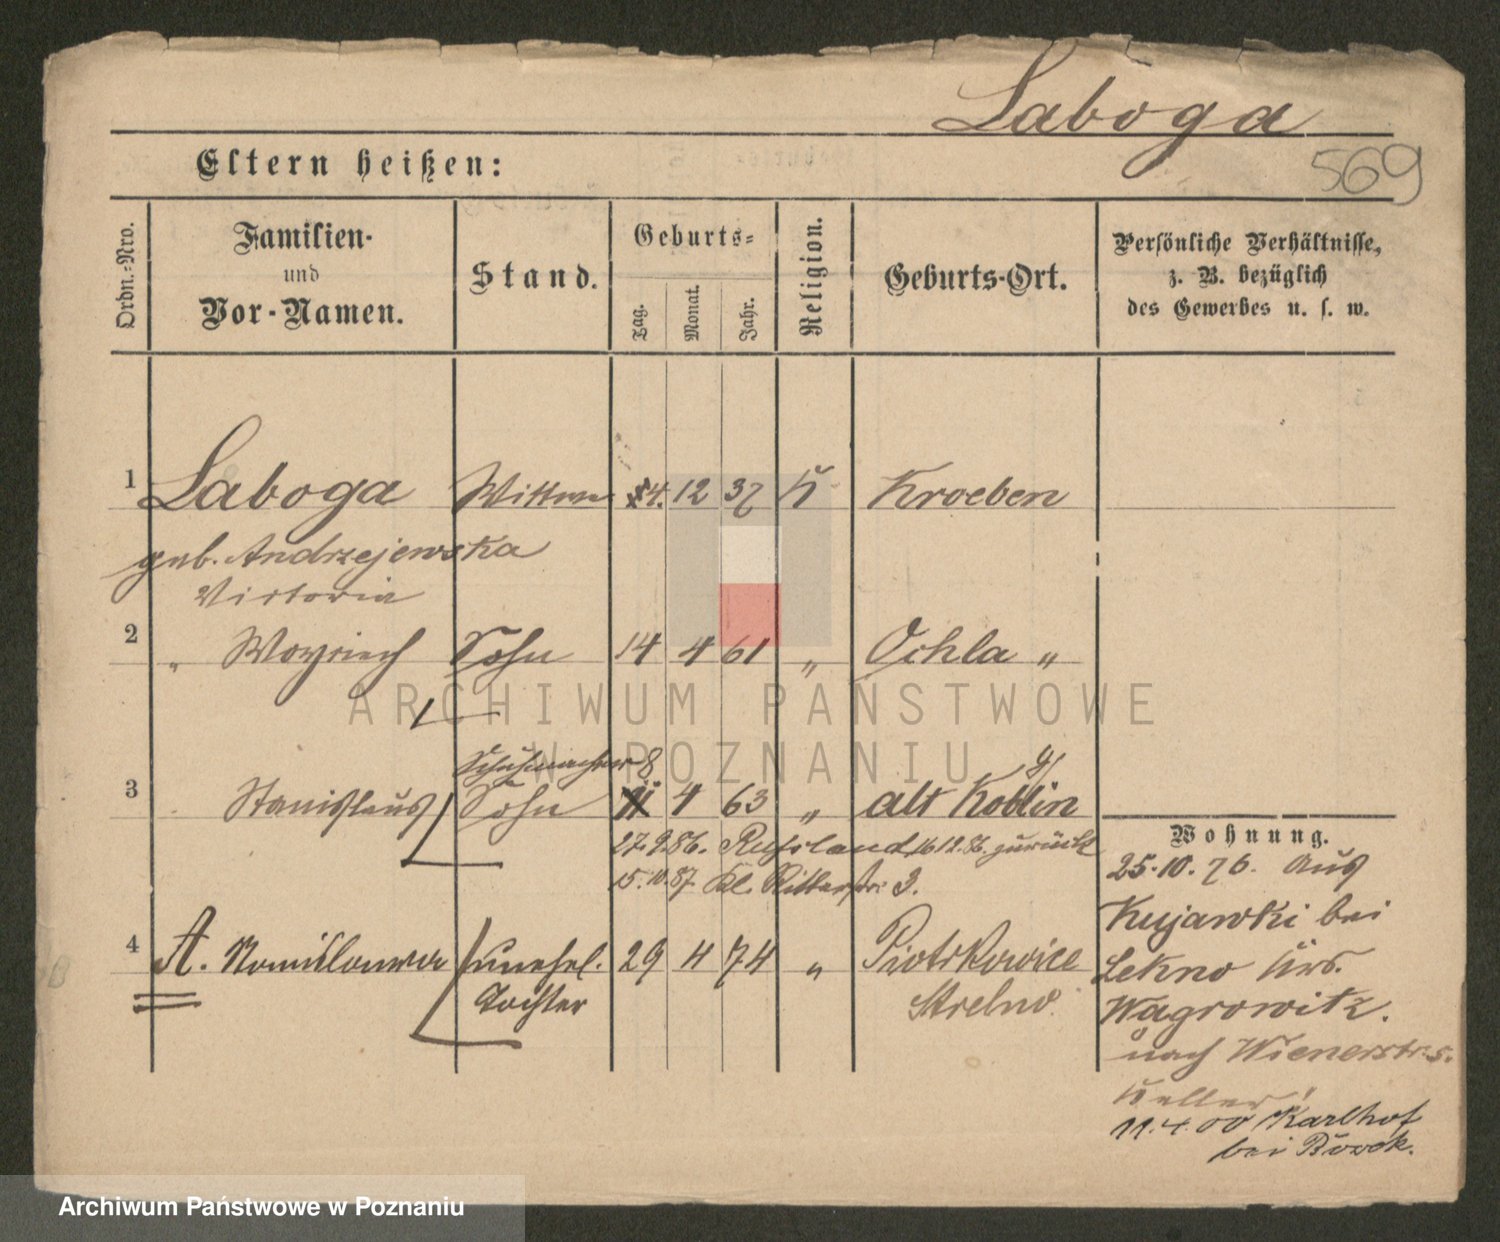 Laboga
569
Eltern heißen:
Ordn.-Nro.
Familien-
und
Vor-Namen.
Stand.
Geburts-
Tag.
Monat.
Jahr.
Religion.
Geburts-Ort.
Persönliche Verhältnisse,
z. B. bezüglich
des Gewerbes u. s. w.
1 Laboga Wittwe 4. 12 37 K Kroeben
geb. Andrzejewska
Victoria
2 " Woyciech Sohn 14 4 61 " Ochla "
Schuhmacher 8
3 Stanislaus Sohn 4 63 " alt Koblin
27.9.86. Russland 16 12.86. zurück
15.10.87. Kl. Ritterstr: 3.
4 A. unehel. 29 4 74 " Piotrkowice
Tochter Strelno.
Wohnung.
25.10.76. Aus
Kujawki bei
Lekno Krs.
Wagrowitz.
nach Wienerstr. 5.
Keller!
11.4.00 Karlhof
bei
ARCHIWUM PAŃSTWOWE
W POZNANIU
Archiwum Państwowe w Poznaniu